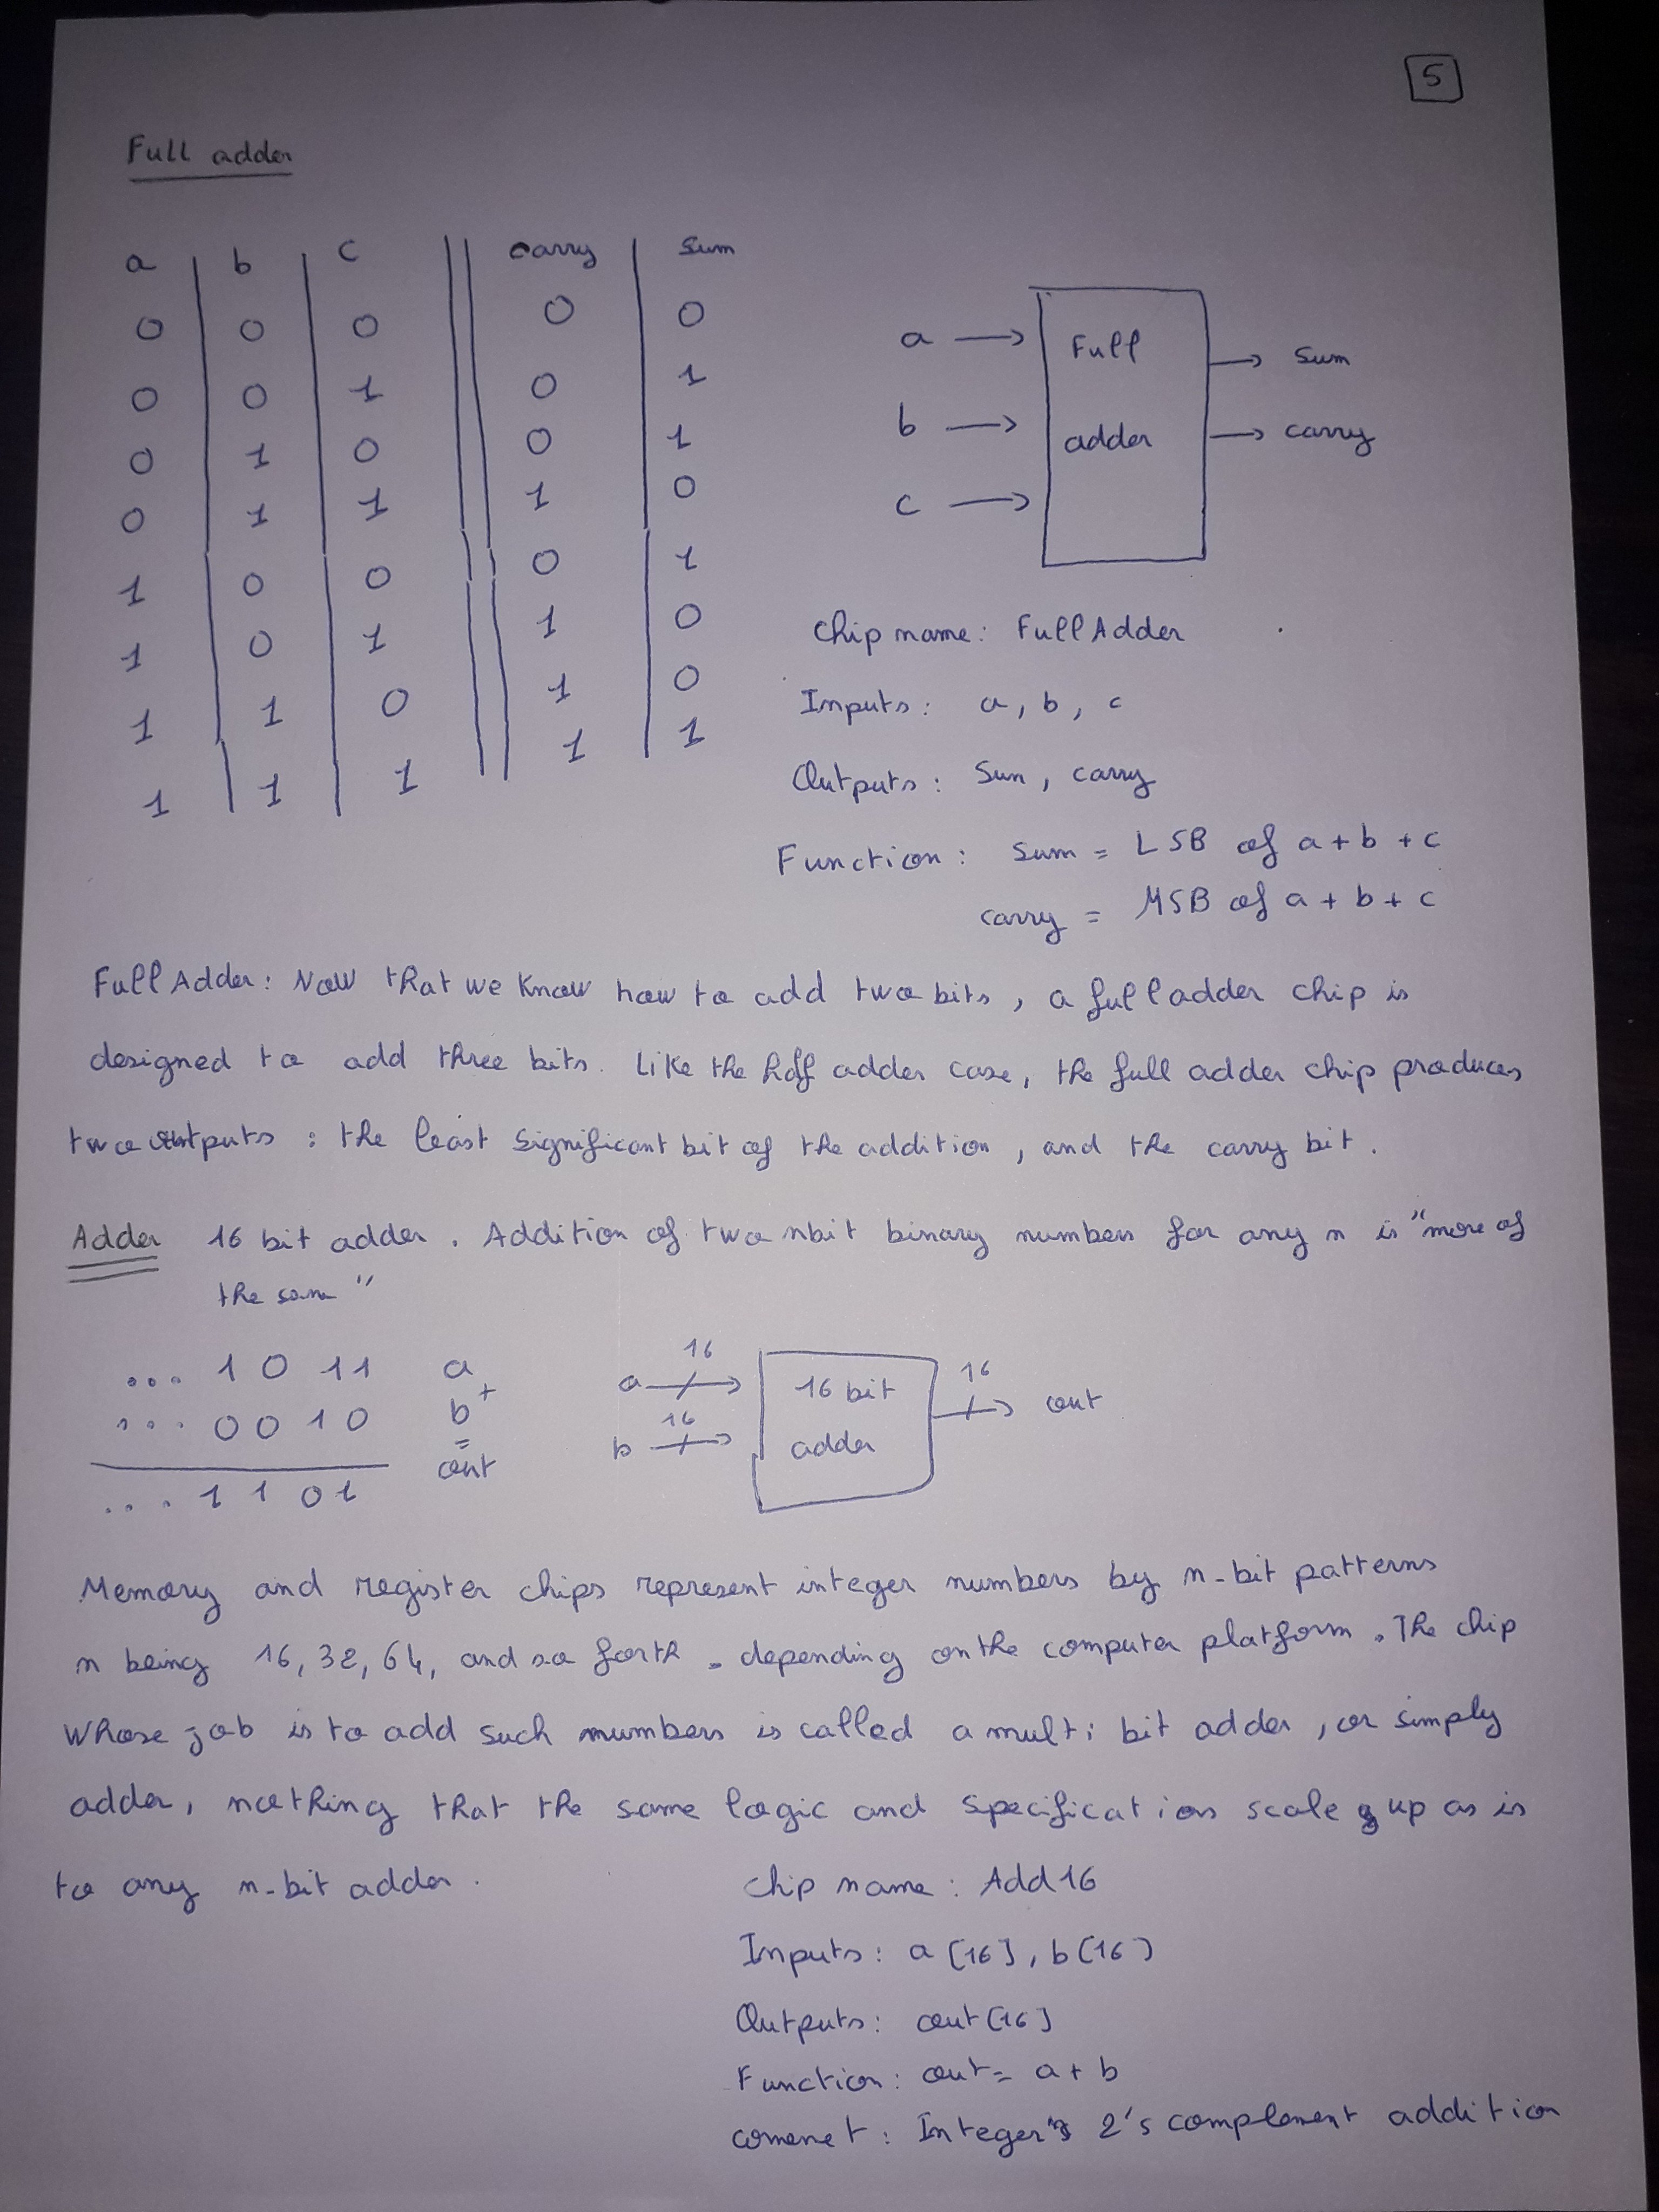 5
Full adder
a b c carry sum
0 0 0 0 0
0 0 1 0 1
0 1 0 0 1
0 1 1 1 0
1 0 0 0 1
1 0 1 1 0
1 1 0 1 0
1 1 1 1 1
a
b
c
Full
adder
sum
carry
Chip name: FullAdder
Inputs: a, b, c
Outputs: Sun, carry
Function: sum = LSB of a + b + c
carry = MSB of a + b + c
Full Adder: Now that we know how to add two bits, a full adder chip is
designed to add three bits. Like the half adder case, the full adder chip produces
two outputs: the least significant bit of the addition, and the carry bit.
Adder 16 bit adder. Addition of two nbit binary numbers for any n is "more of
the same"
... 1 0 1 1 a
+
... 0 0 1 0 b
=
out
.... 1 1 0 1
a 16
b 16
16 bit
adder
16
out
Memory and register chips represent integer numbers by n-bit patterns
n being 16, 32, 64, and so forth - depending on the computer platform. The chip
Whose job is to add such numbers is called a multi bit adder, or simply
adder, nothing that the same logic and specification scales up as is
to any n-bit adder.
Chip name: Add16
Inputs: a[16], b[16]
Outputs: out[16]
Function: out = a + b
comenet: Integer's 2's complement addition